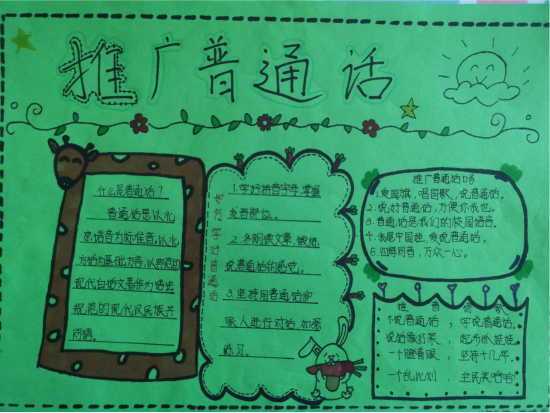 推广普通话
什么是普通话？
普通话是以北
京语音为标准音,以北
方话为基础方言,以典范的
现代白话文著作为语法
规范的现代汉民族共
同语。
如何学好普通话
1.学好拼音字母,掌握
发音部位。
2.多朗读文章,锻炼
说普通话的感觉。
3.坚持用普通话和
家人进行对话,加强
练习。
推广普通话口号
1.爱国旗,唱国歌,说普通话。
2.说好普通话,方便你我他。
3.普通话是我们的校园语言。
4.我是中国娃,爱说普通话。
5.四海同音,万众一心。
不说普通话,
学说普通话。
说话像打架,
坚持十几年,